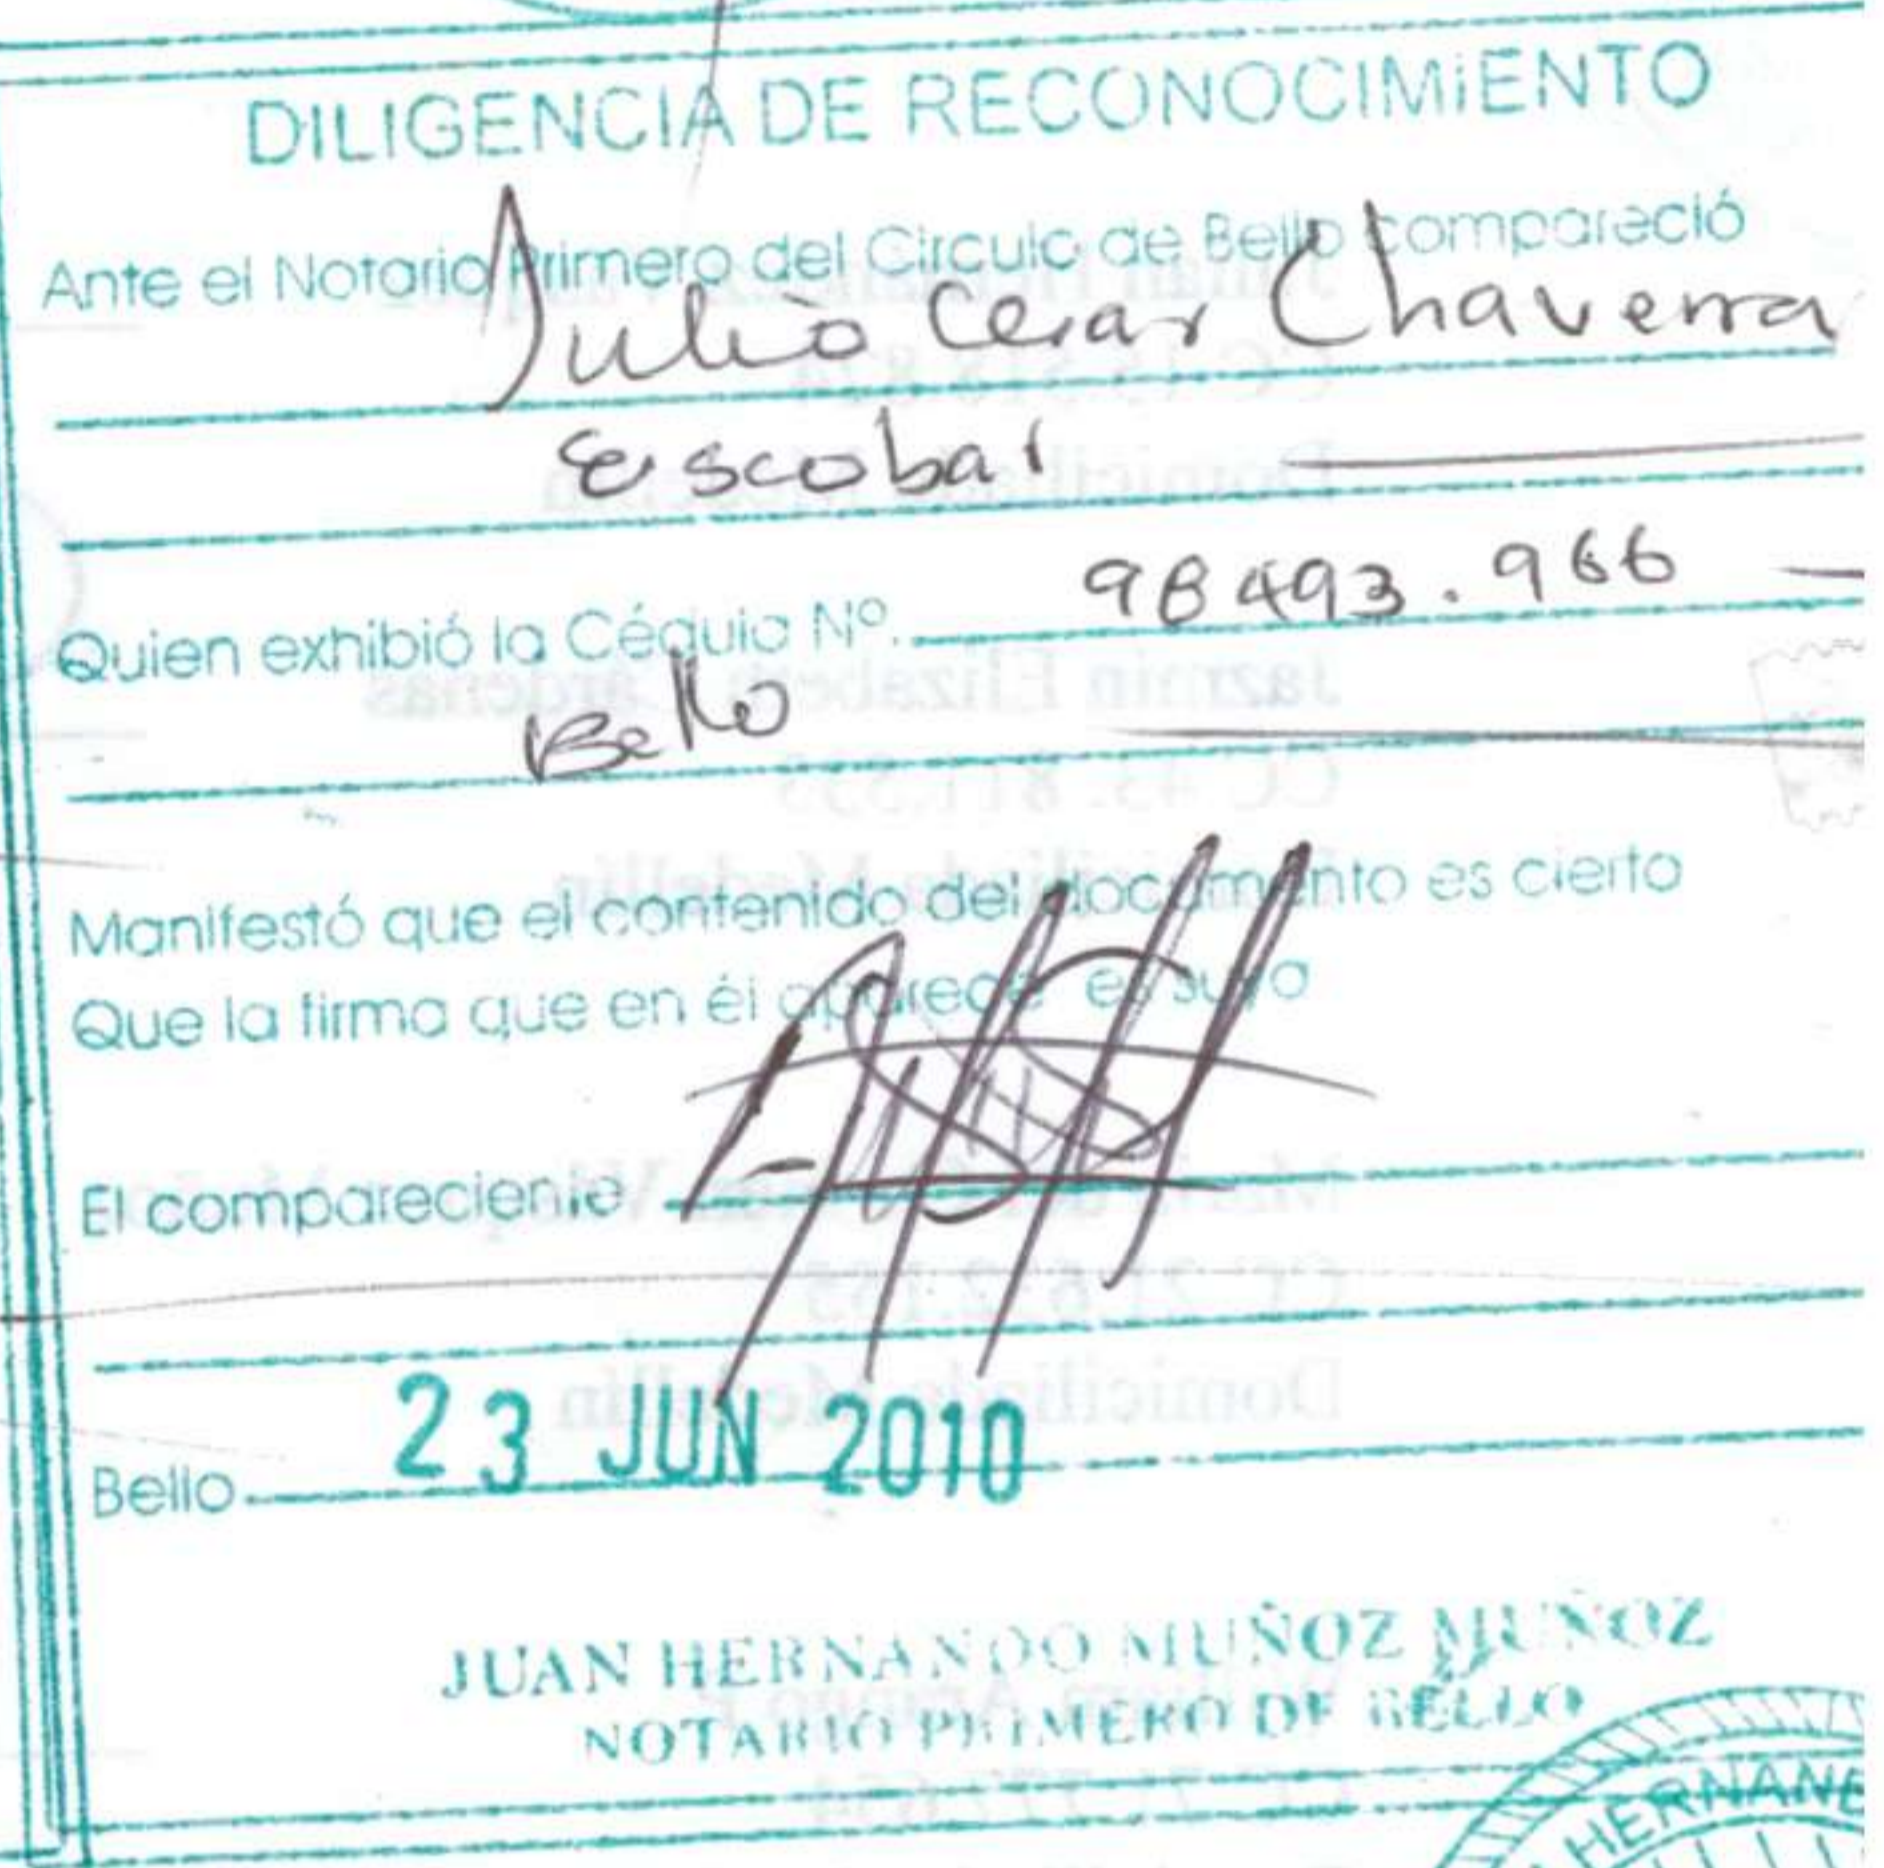 DILIGENCIA DE RECONOCIMIENTO
Ante el Notario Primero del Circulo de Bello compareció
Julio Cesar Chaverra
Escobar
Quien exhibió la Cédula Nº. 98493.966
Bello
Manifestó que el contenido del documento es cierto
Que la firma que en él aparece es suya
El compareciente
Bello 23 JUN 2010
JUAN HERNANDO MUÑOZ MUÑOZ
NOTARIO PRIMERO DE BELLO